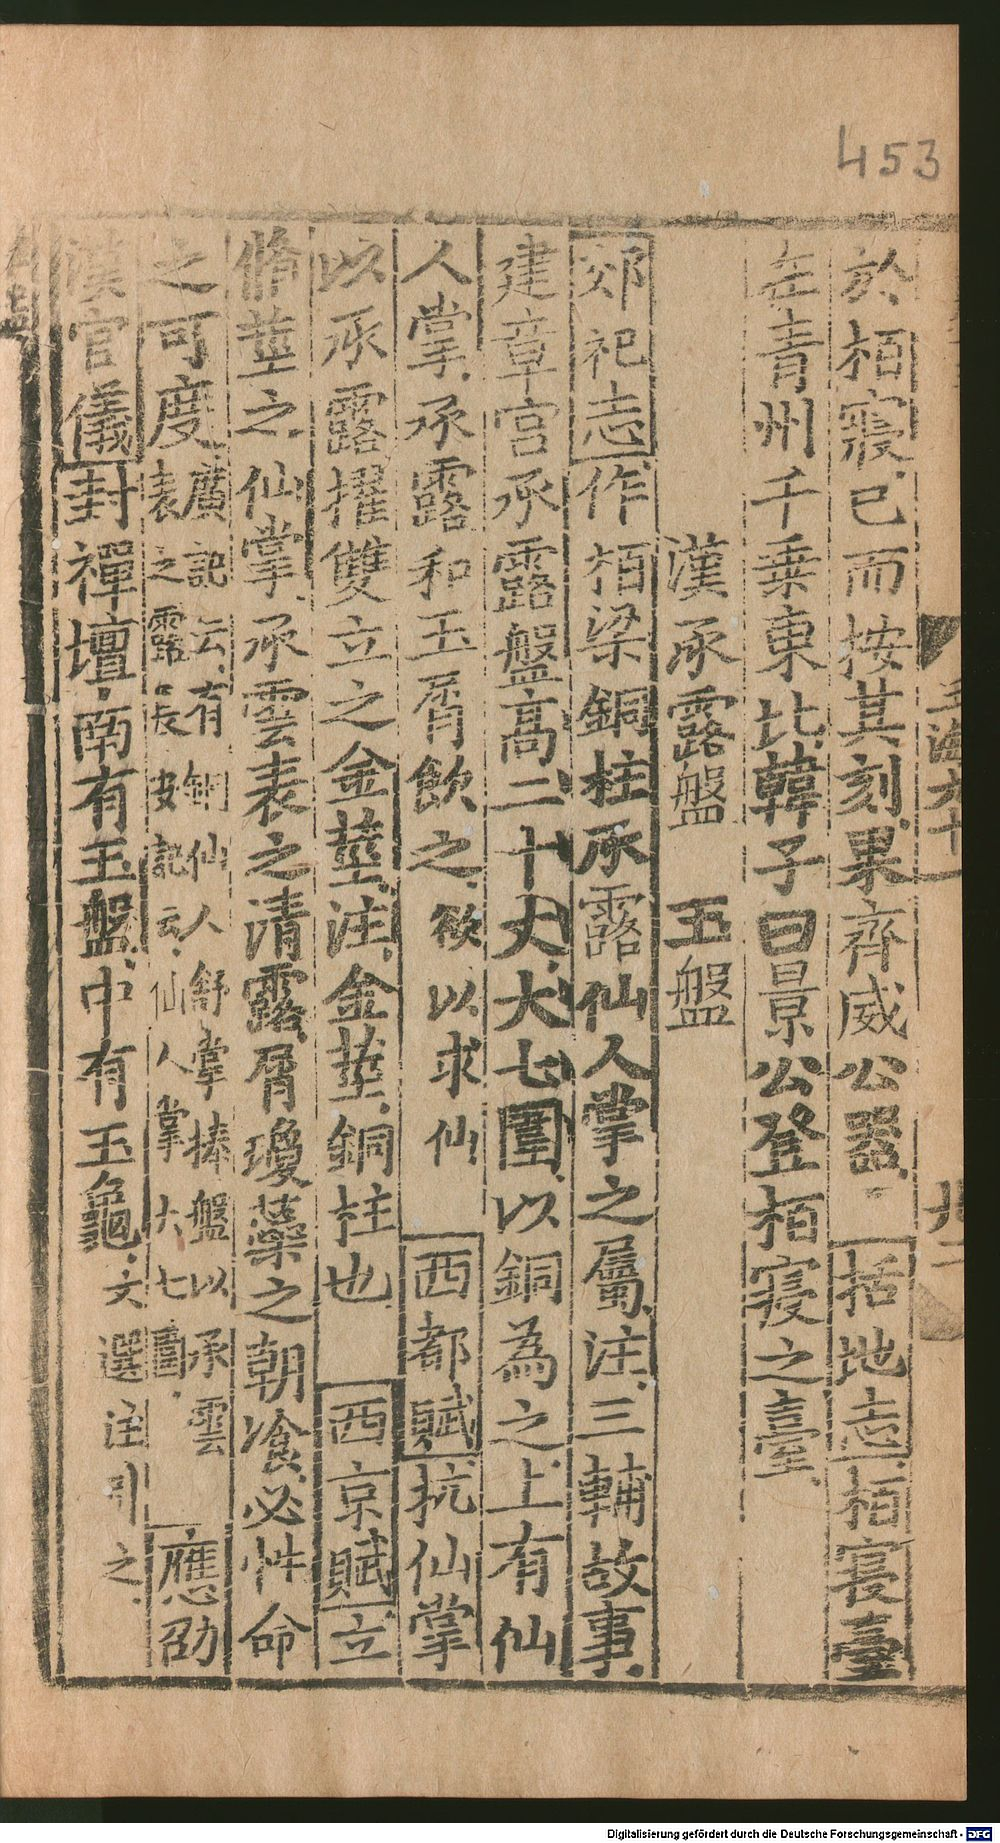 453
於栢寢已而按其刻果齊威公器 括地志栢寢臺
在青州千乗東北韓子曰景公登栢寢之臺
漢承露盤 玉盤
郊祀志作栢梁銅柱承露仙人掌之屬注三輔故事
建章宫承露盤高二十丈大七圍以銅為之上有仙
人掌承露和玉屑飲之欲以求仙 西都賦抗仙掌
以承露擢雙立之金莖注金莖銅柱也 西京賦立
脩莖之仙掌承雲表之清露屑瓊蘂之朝飡必性命
之可度廣記云有銅仙人舒掌捧盤以承雲
表之露長安記云仙人掌大七圍 應劭
漢官儀封禪壇南有玉盤中有玉龜文選注引之
玉海九十
Digitalisierung gefördert durch die Deutsche Forschungsgemeinschaft - DFG